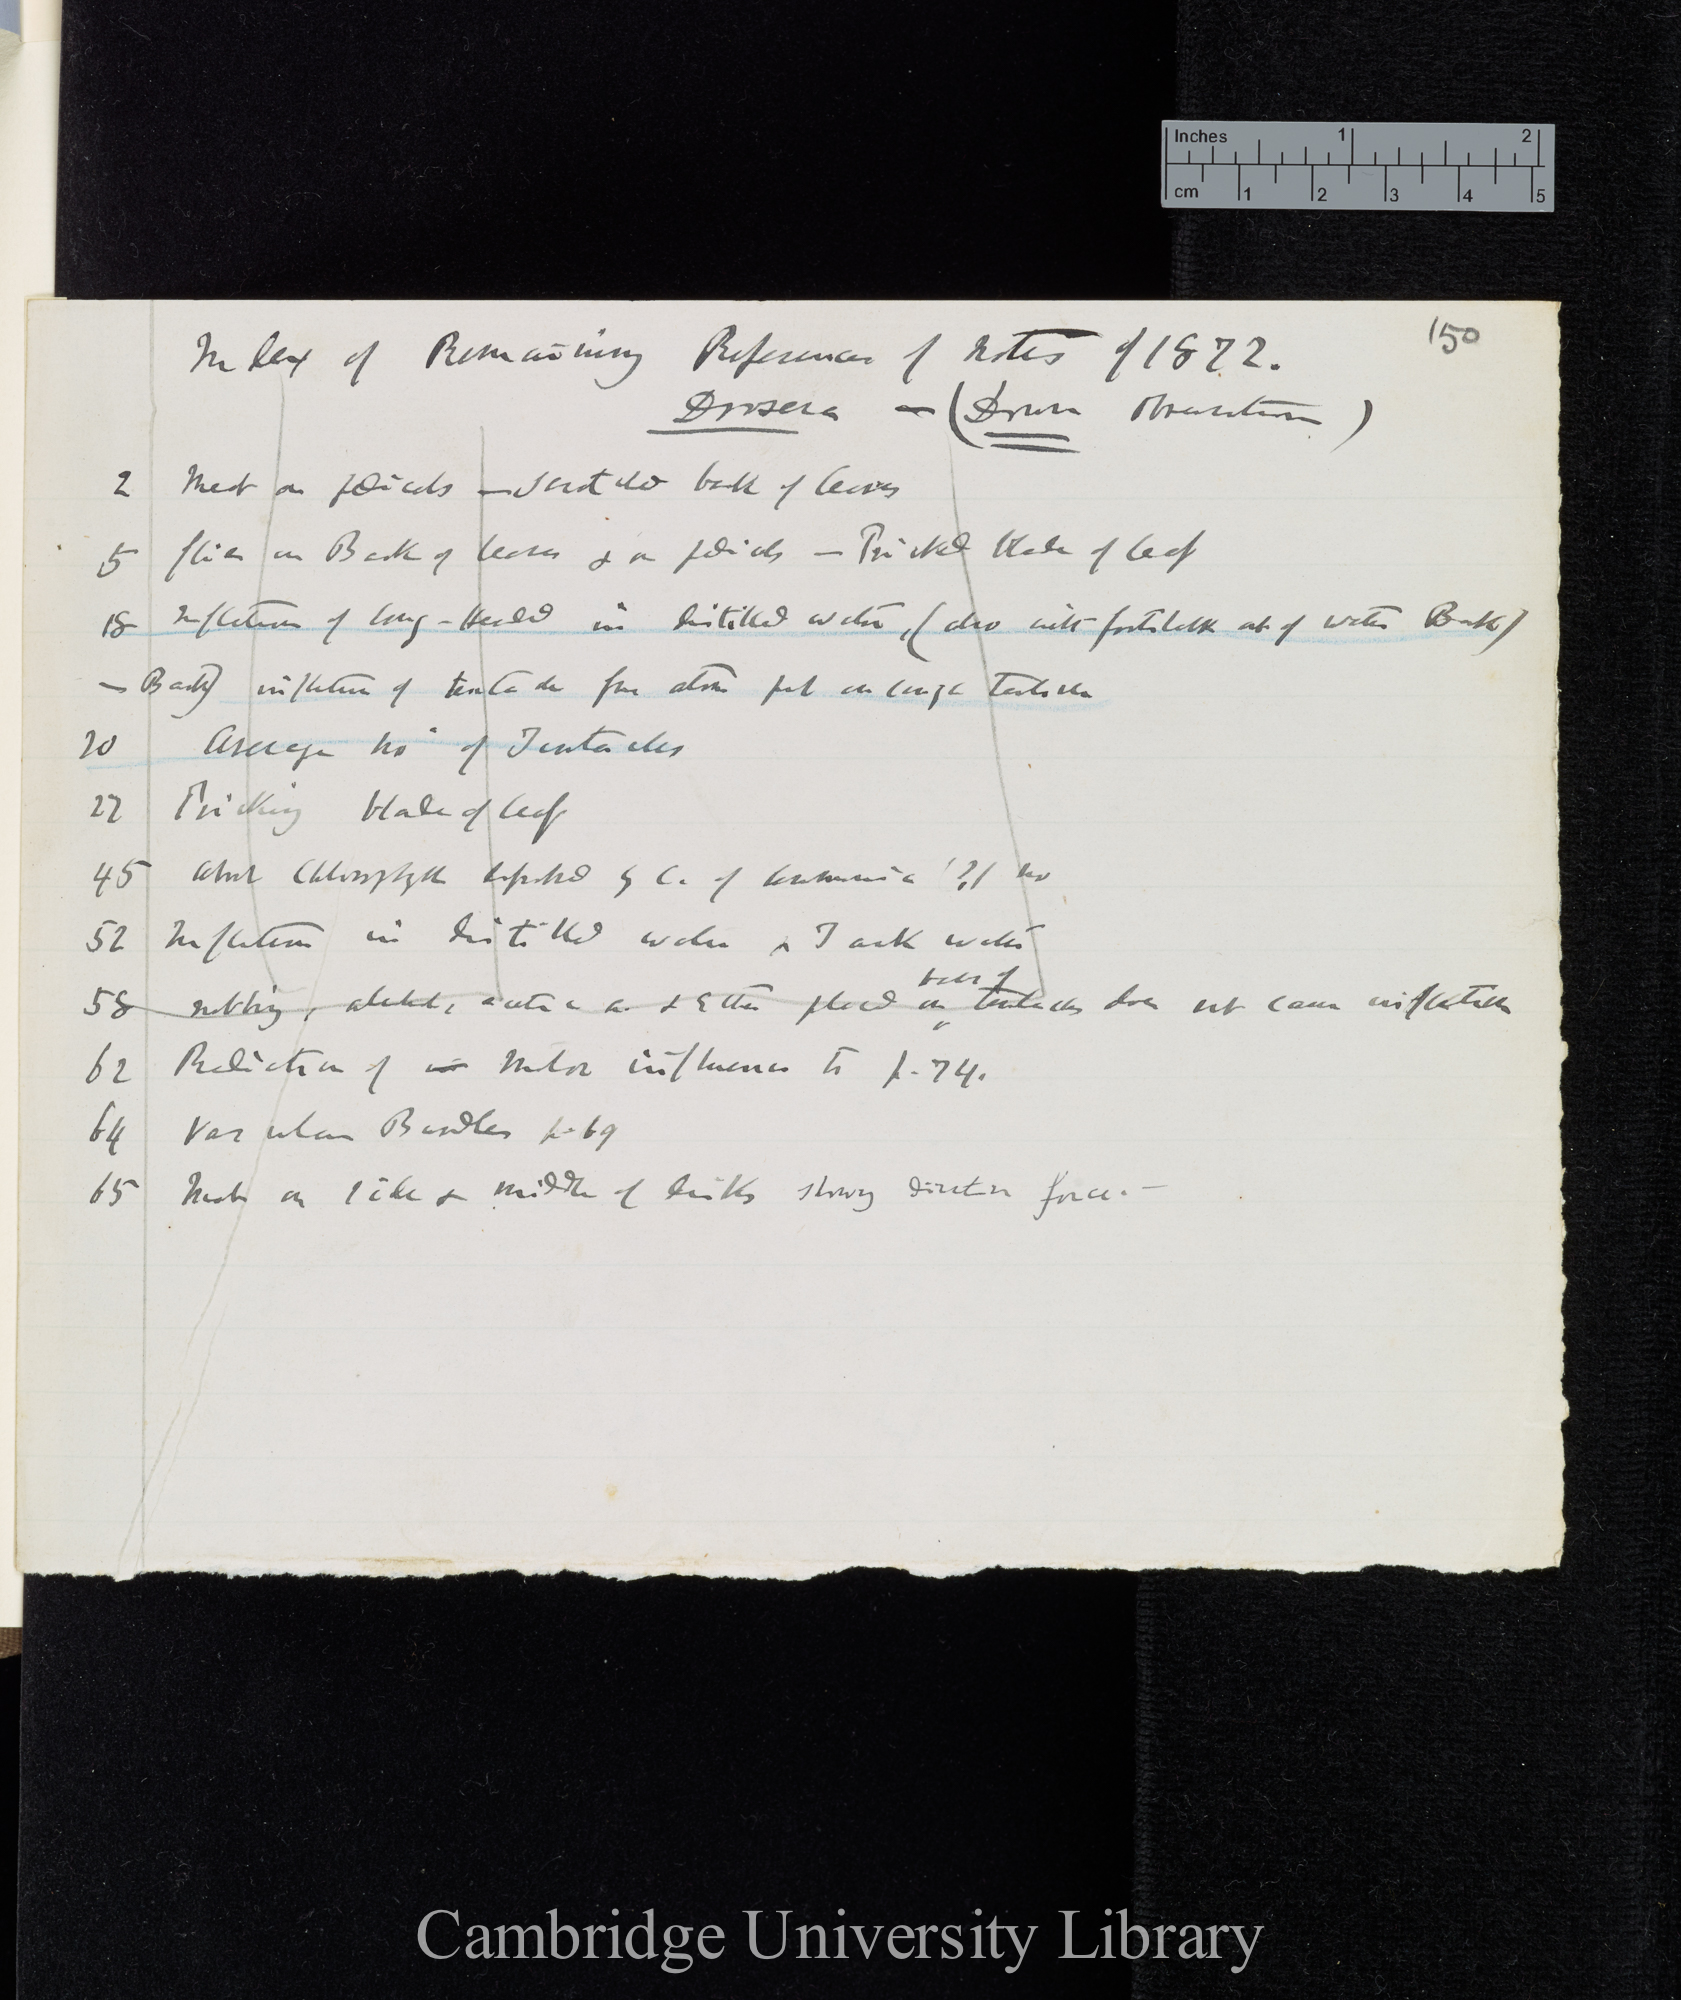 Inches 1 2
cm 1 2 3 4 5
150
Index of Remaining References of Notes of 1872.
Drosera — (Down Observations)
2 Meat on pedicels — Scratched back of leaves
5 flies on Back of leaves & on pedicels — Pricked blade of leaf
18 Inflection of long-headed in distilled water, (also with of water Back)
— Back) inflection of tentacle from atom put on longer tentacles
20 Average No of Tentacles
22 Pricking blade of leaf
45 about Chlorophyll C. of Ammonia (?) no
52 Inflection in distilled water & Tank water
back of
58 rubbing, alcohol, & Ether placed on tentacles does not cause inflection
62 Radiation of Motor influence to p. 74.
64 Vascular Bundles p. 69
65 Meat on side & middle of disks shows direction force. —
Cambridge University Library